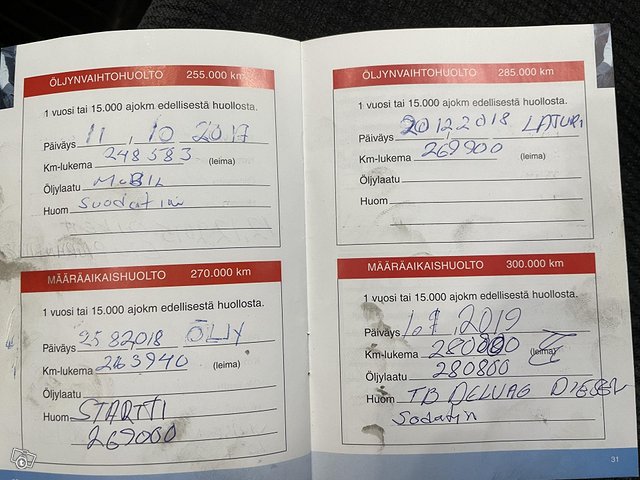 ÖLJYNVAIHTOHUOLTO 255.000 km
1 vuosi tai 15.000 ajokm edellisestä huollosta.
Päiväys 11 . 10 2017
Km-lukema 248583 (leima)
Öljylaatu MOBIL
Huom Suodatin
MÄÄRÄAIKAISHUOLTO 270.000 km
1 vuosi tai 15.000 ajokm edellisestä huollosta.
Päiväys 25 8 2018 ÖLJY
Km-lukema 263940 (leima)
Öljylaatu
Huom STARTTI
269000
ÖLJYNVAIHTOHUOLTO 285.000 km
1 vuosi tai 15.000 ajokm edellisestä huollosta.
Päiväys 20.12.2018 LATURI
Km-lukema 269900 (leima)
Öljylaatu
Huom
MÄÄRÄAIKAISHUOLTO 300.000 km
1 vuosi tai 15.000 ajokm edellisestä huollosta.
Päiväys 2019
Km-lukema (leima)
Öljylaatu 280800
Huom TB DELVAG DIESEL
Sodatin
31